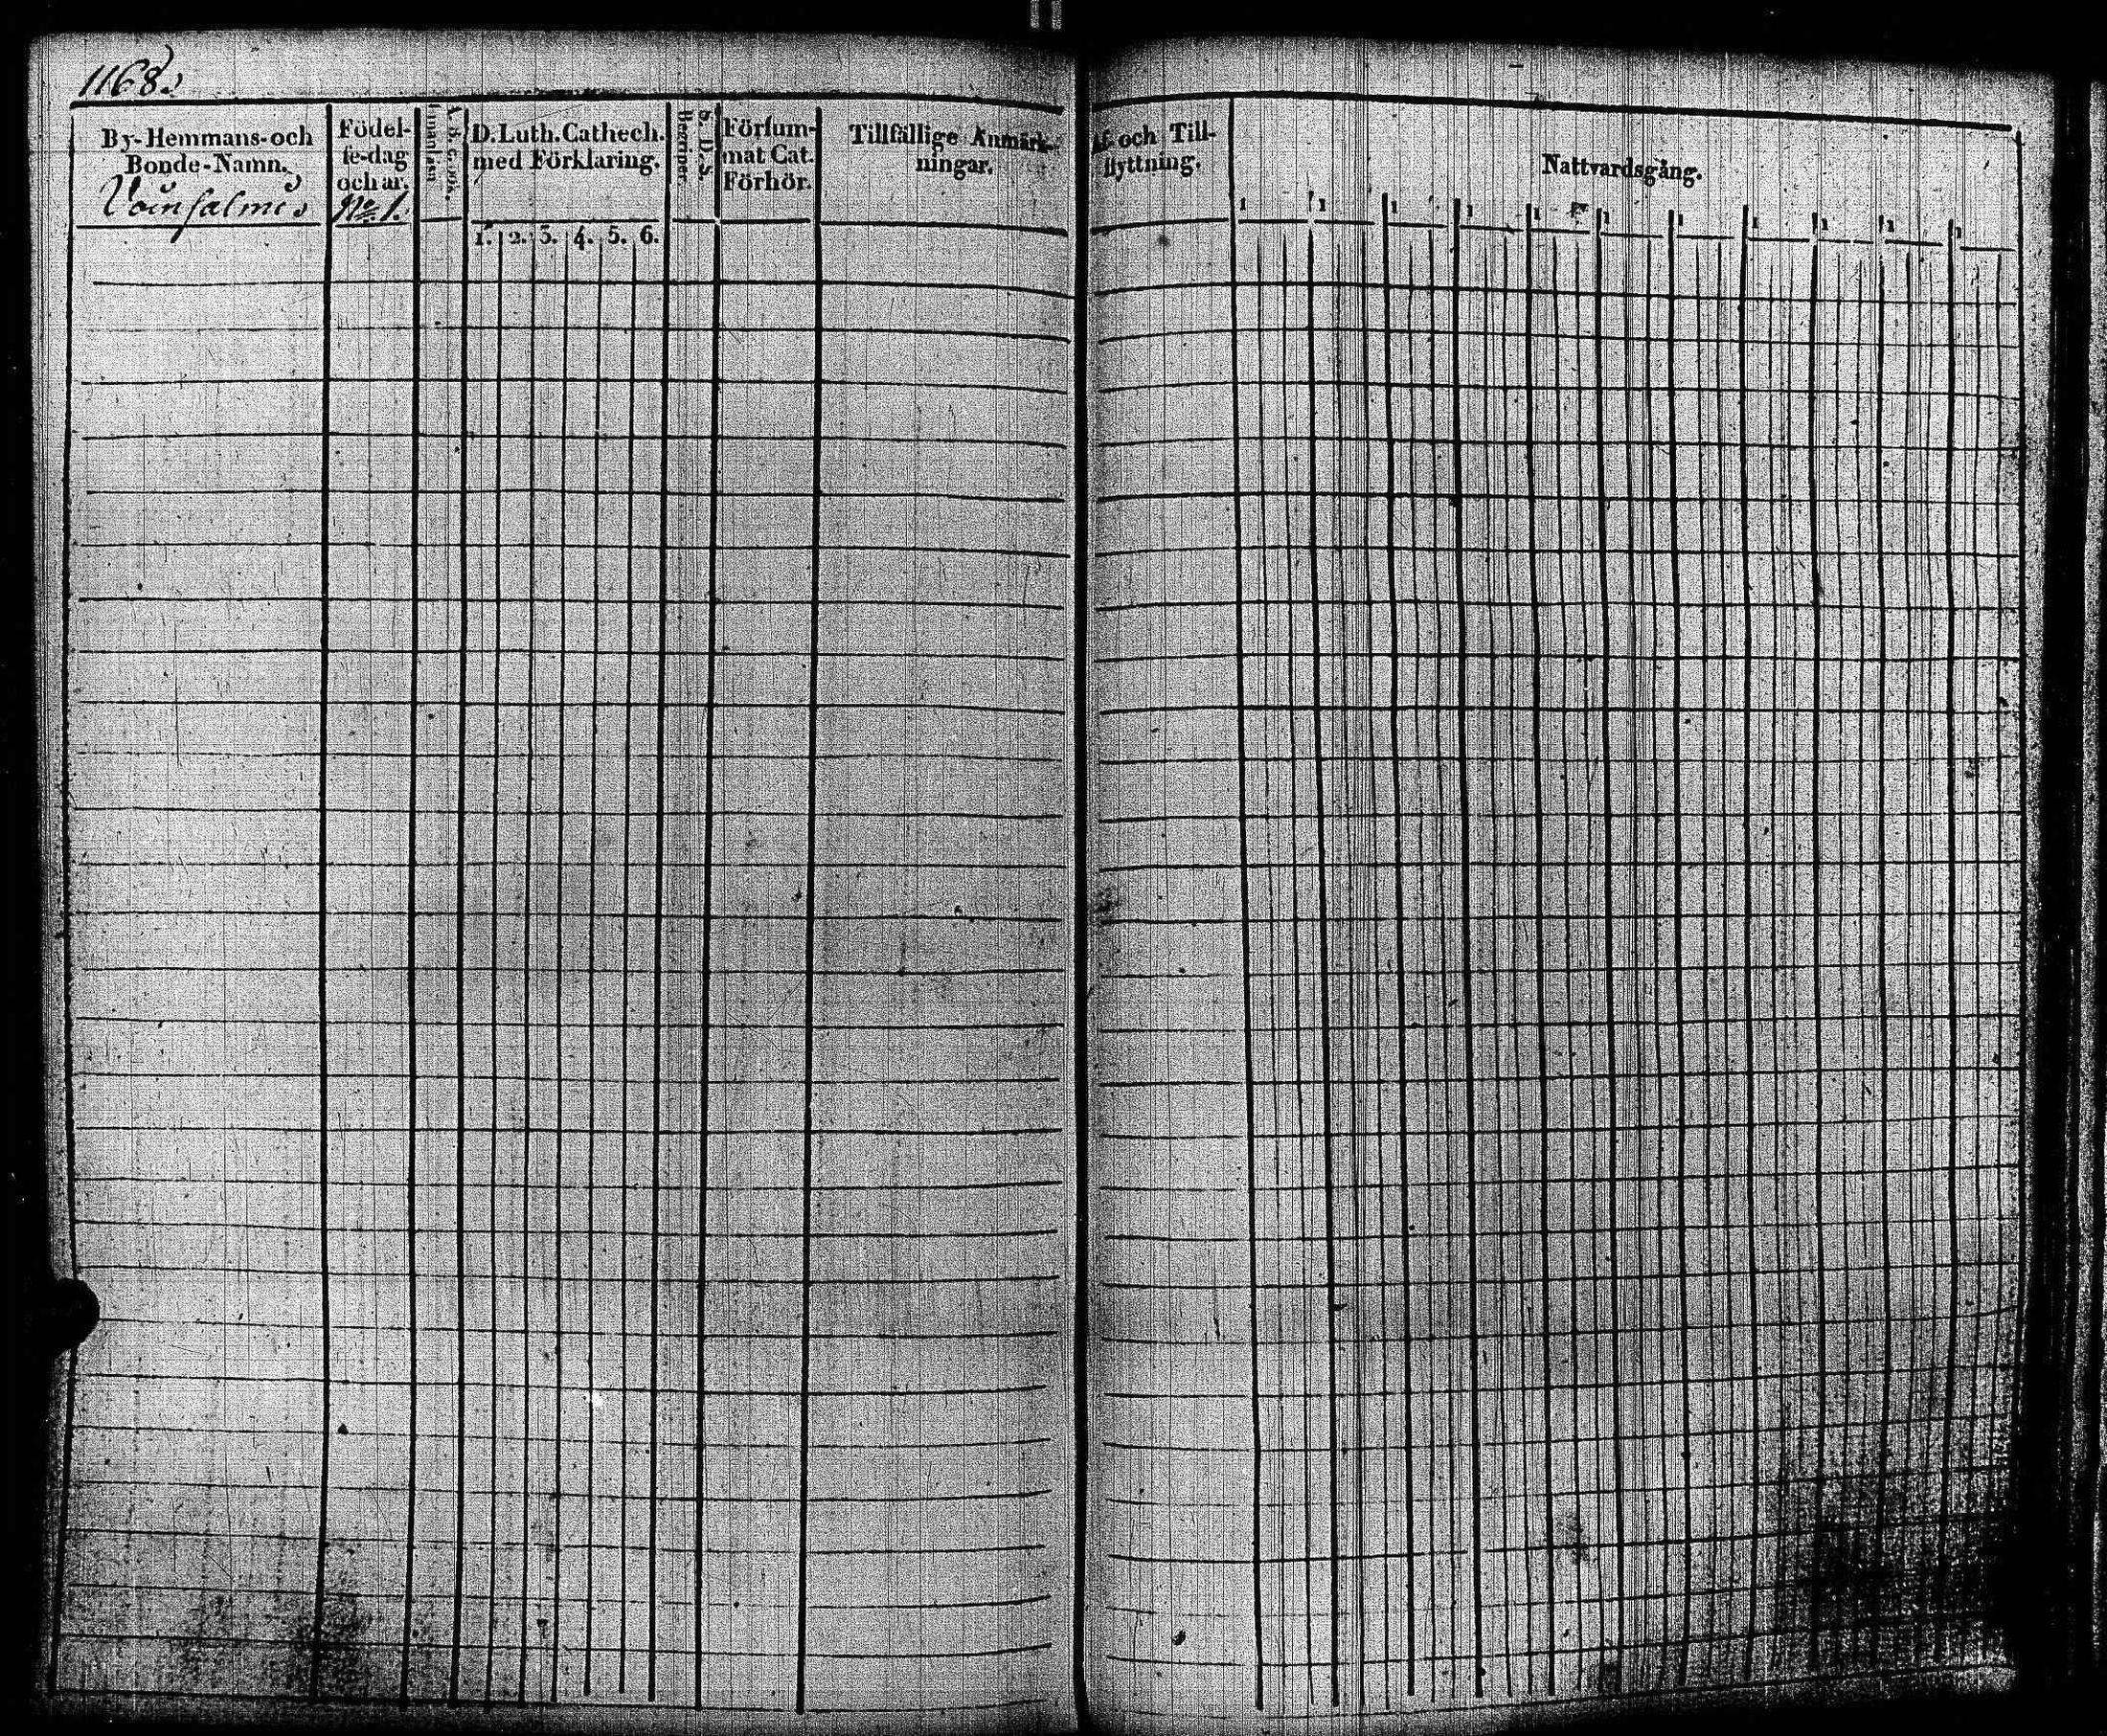 1168.
By-Hemmans- och
Bonde-Namn.
Voinsalmis
Födel-
se-dag
och år.
No 1.
A. b. c. bok.
Innanläsn
D. Luth. Cathech.
med Förklaring.
1. 2. 3. 4. 5. 6.
S. D. S.
Begriper.
Försum-
mat Cat.
Förhör.
Tillfällige Anmärk-
ningar.
Af- och Till-
flyttning.
Nattvardsgång.
1 1 1 1 1 1 1 1 1 1 1